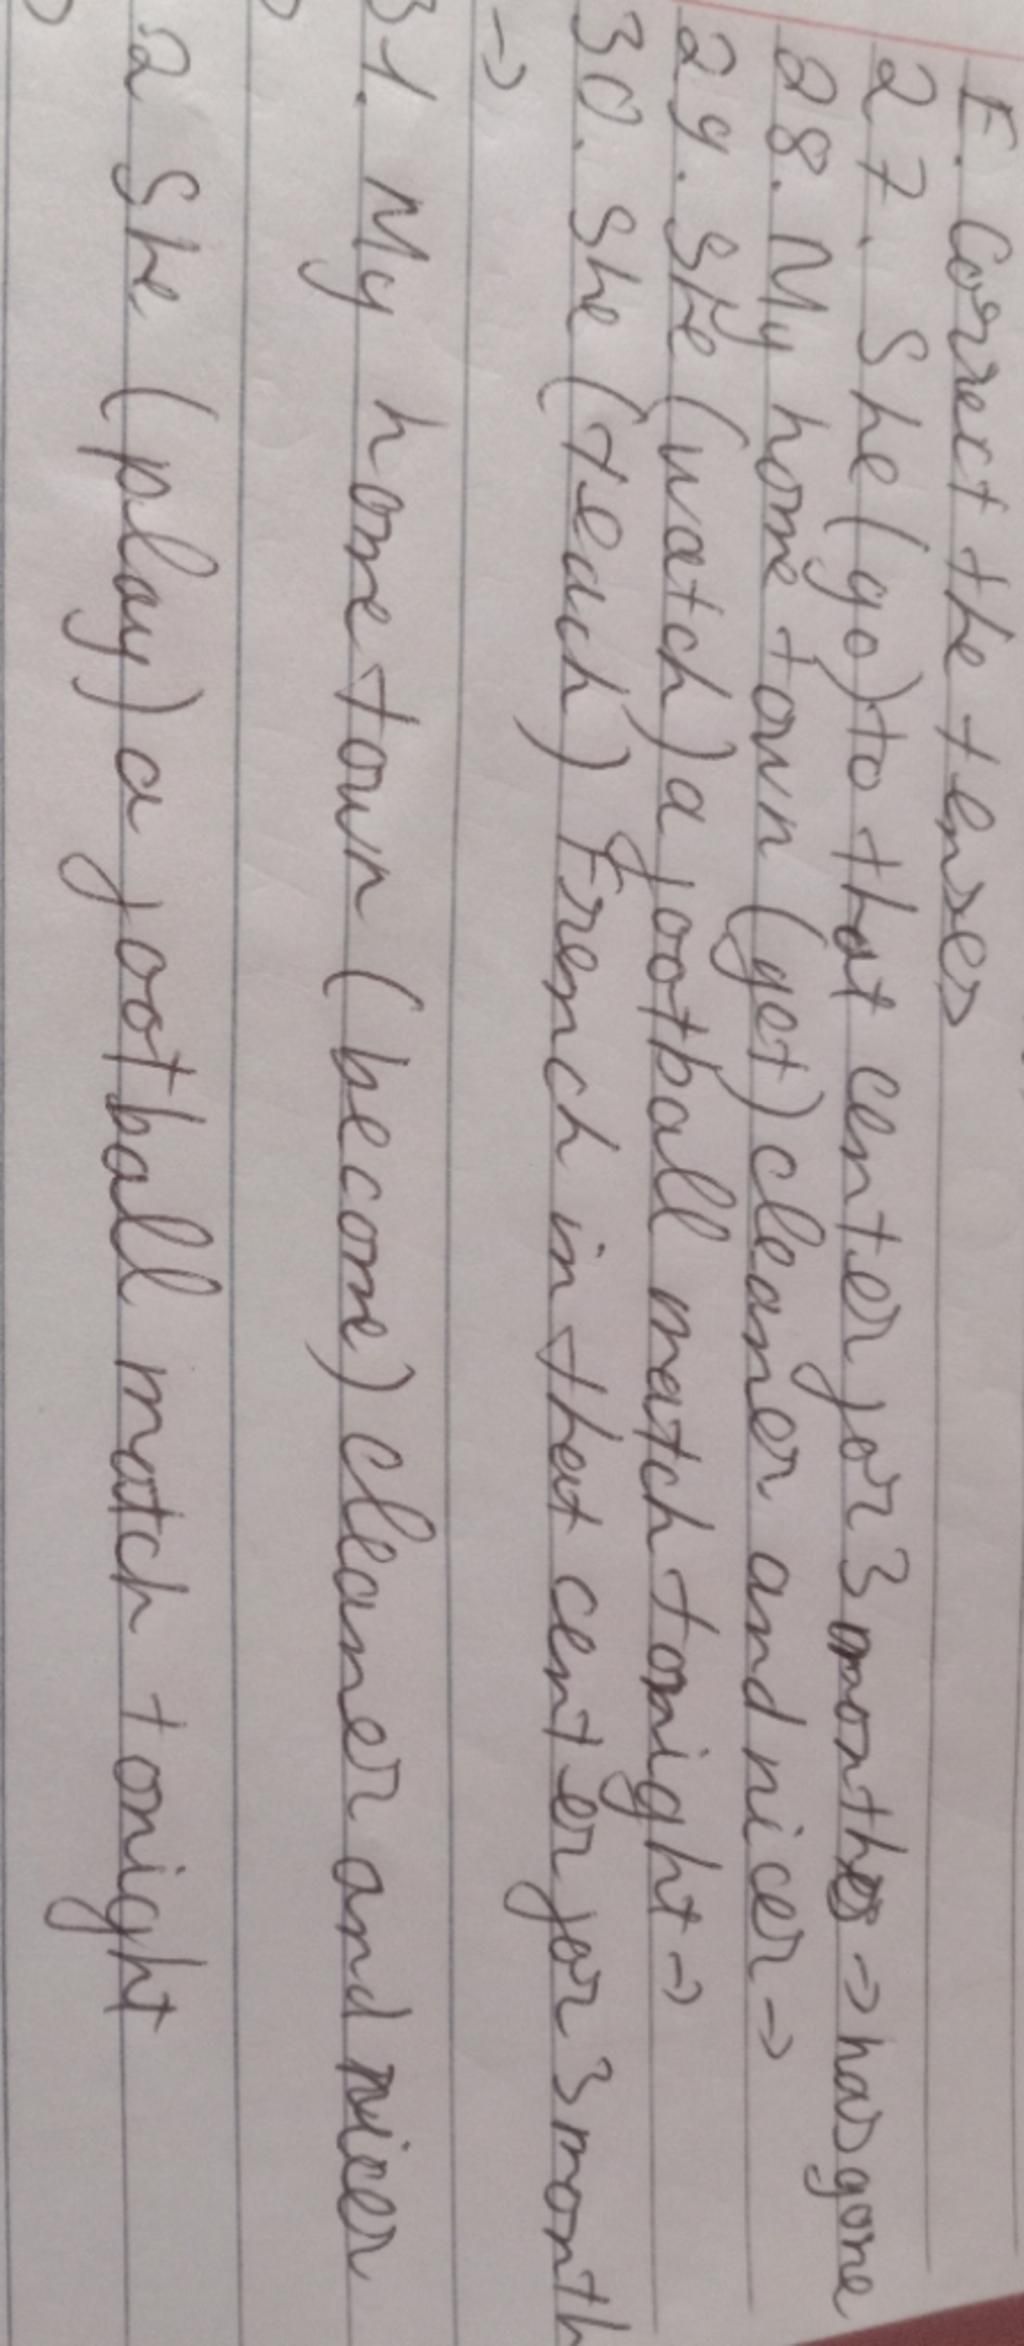 F. Correct the tenses
27. She (go) to that center for 3 months -> has gone
28. My home town (get) cleaner and nicer ->
29. She (watch) a football match tonight ->
30. She (teach) French in that center for 3 month
->
31. My home town (become) cleaner and nicer
2 She (play) a football match tonight